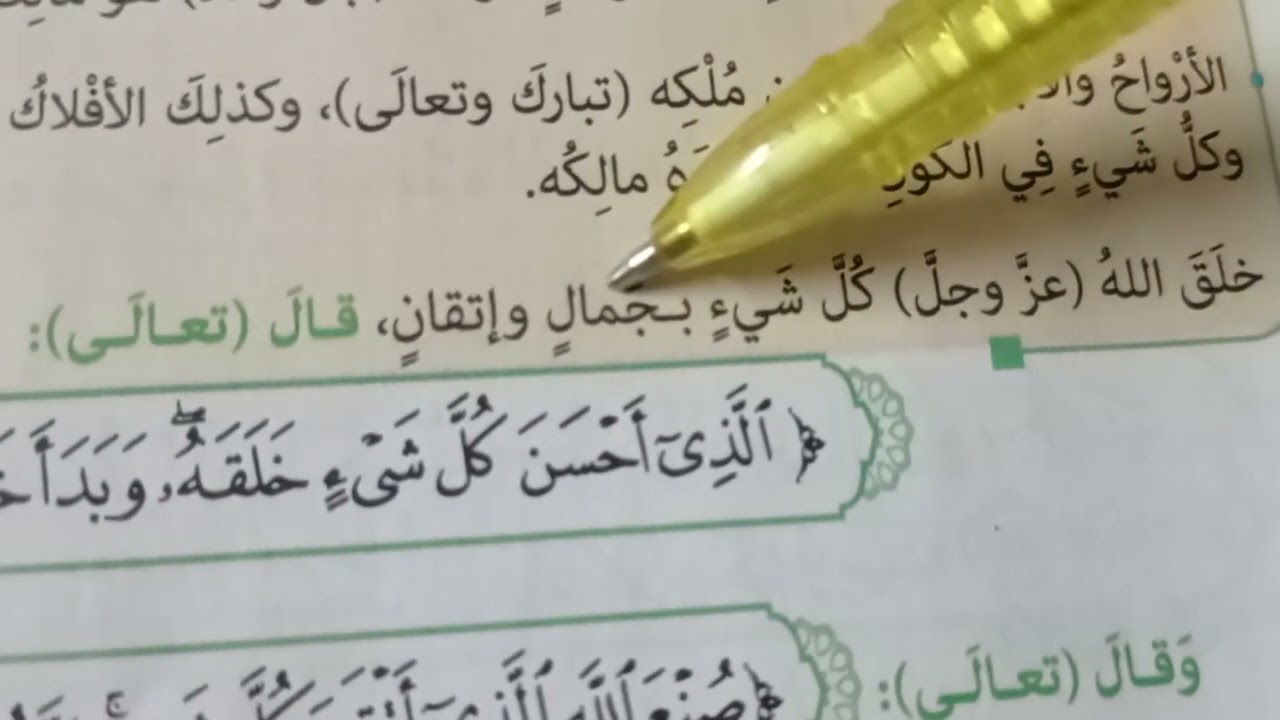 الأرْواحُ مُلْكِه (تباركَ وتعالَى)، وكذلِكَ الأفْلاكُ
وكلُّ شَيءٍ فِي مالِكُه.
خلَقَ اللهُ (عزَّ وجلَّ) كُلَّ شَيءٍ بـجَمالٍ وإتقانٍ، قـالَ (تعـالَـى):
﴿ ٱلَّذِىٓ أَحْسَنَ كُلَّ شَىْءٍ خَلَقَهُۥۖ وَبَدَأَ
وَقـالَ (تعـالَـى):
﴿ صُنْعَ ٱللَّهِ ٱلَّذِىٓ